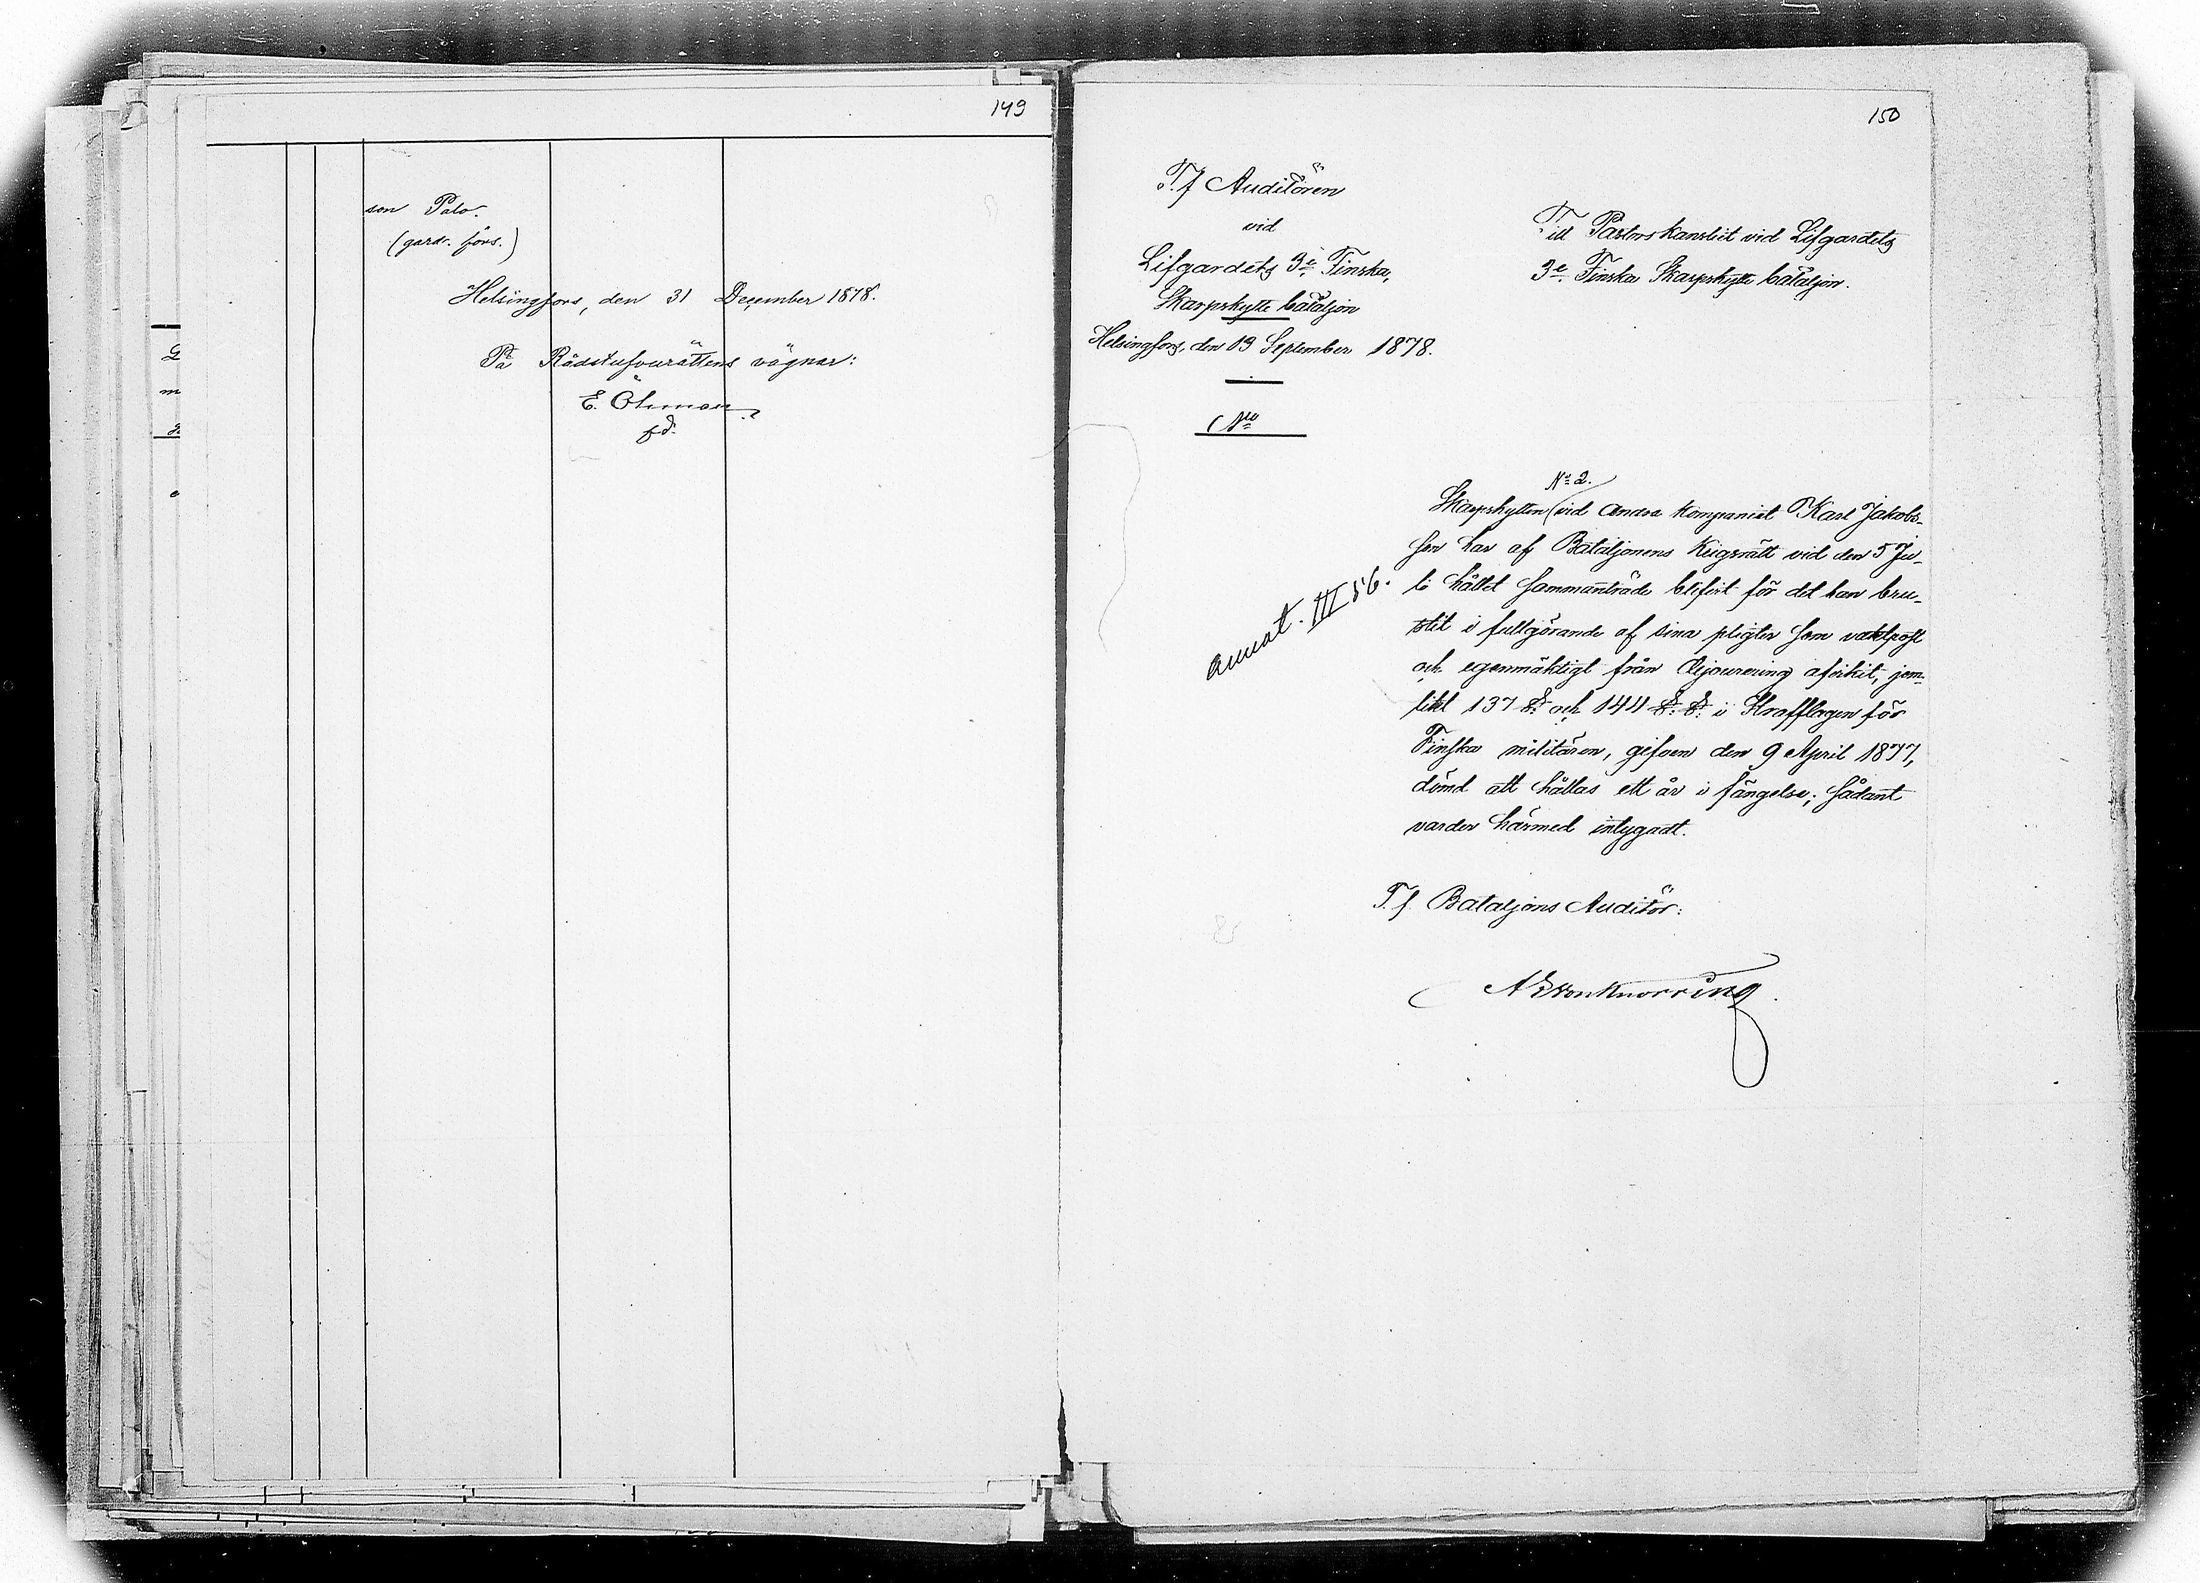 149
son Palo.
(gard. förs.)
Helsingfors, den 31 December 1878.
På Rådstufvurättens vägnar:
E. Öhman
150
T. f Auditören
vid
Lifgardets 3e Finska
Skarpskytte bataljon
Helsingfors, den 19 September 1878.
No
Till Pastorskansliet vid Lifgardets
3e Finska Skarpskytte bataljon.
No 2.
Skarpskytten vid Andra Kompaniet Karl Jakobs-
son har af Bataljonens Krigsrätt vid den 5 Ju-
li hållet sammanträde blifvit för det han bru-
stit i fullgörande af sina pligter som vaktpost
och egenmäktigt från dejourering afvikit, jem-
likt 137 §. och 144 §. §. i Strafflagen för
Finska militären, gifven den 9 April 1877,
dömd att hållas ett år i fängelse; sådant
varder härmed intygadt.
annot. III 56.
T. f. Bataljons Auditör:
A E von Knorring